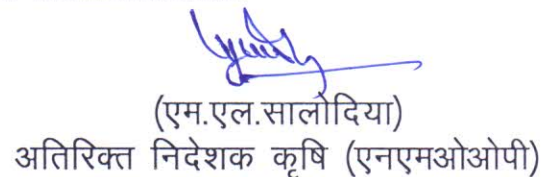 (एम.एल.सालोदिया)
अतिरिक्त निदेशक कृषि (एनएमओओपी)